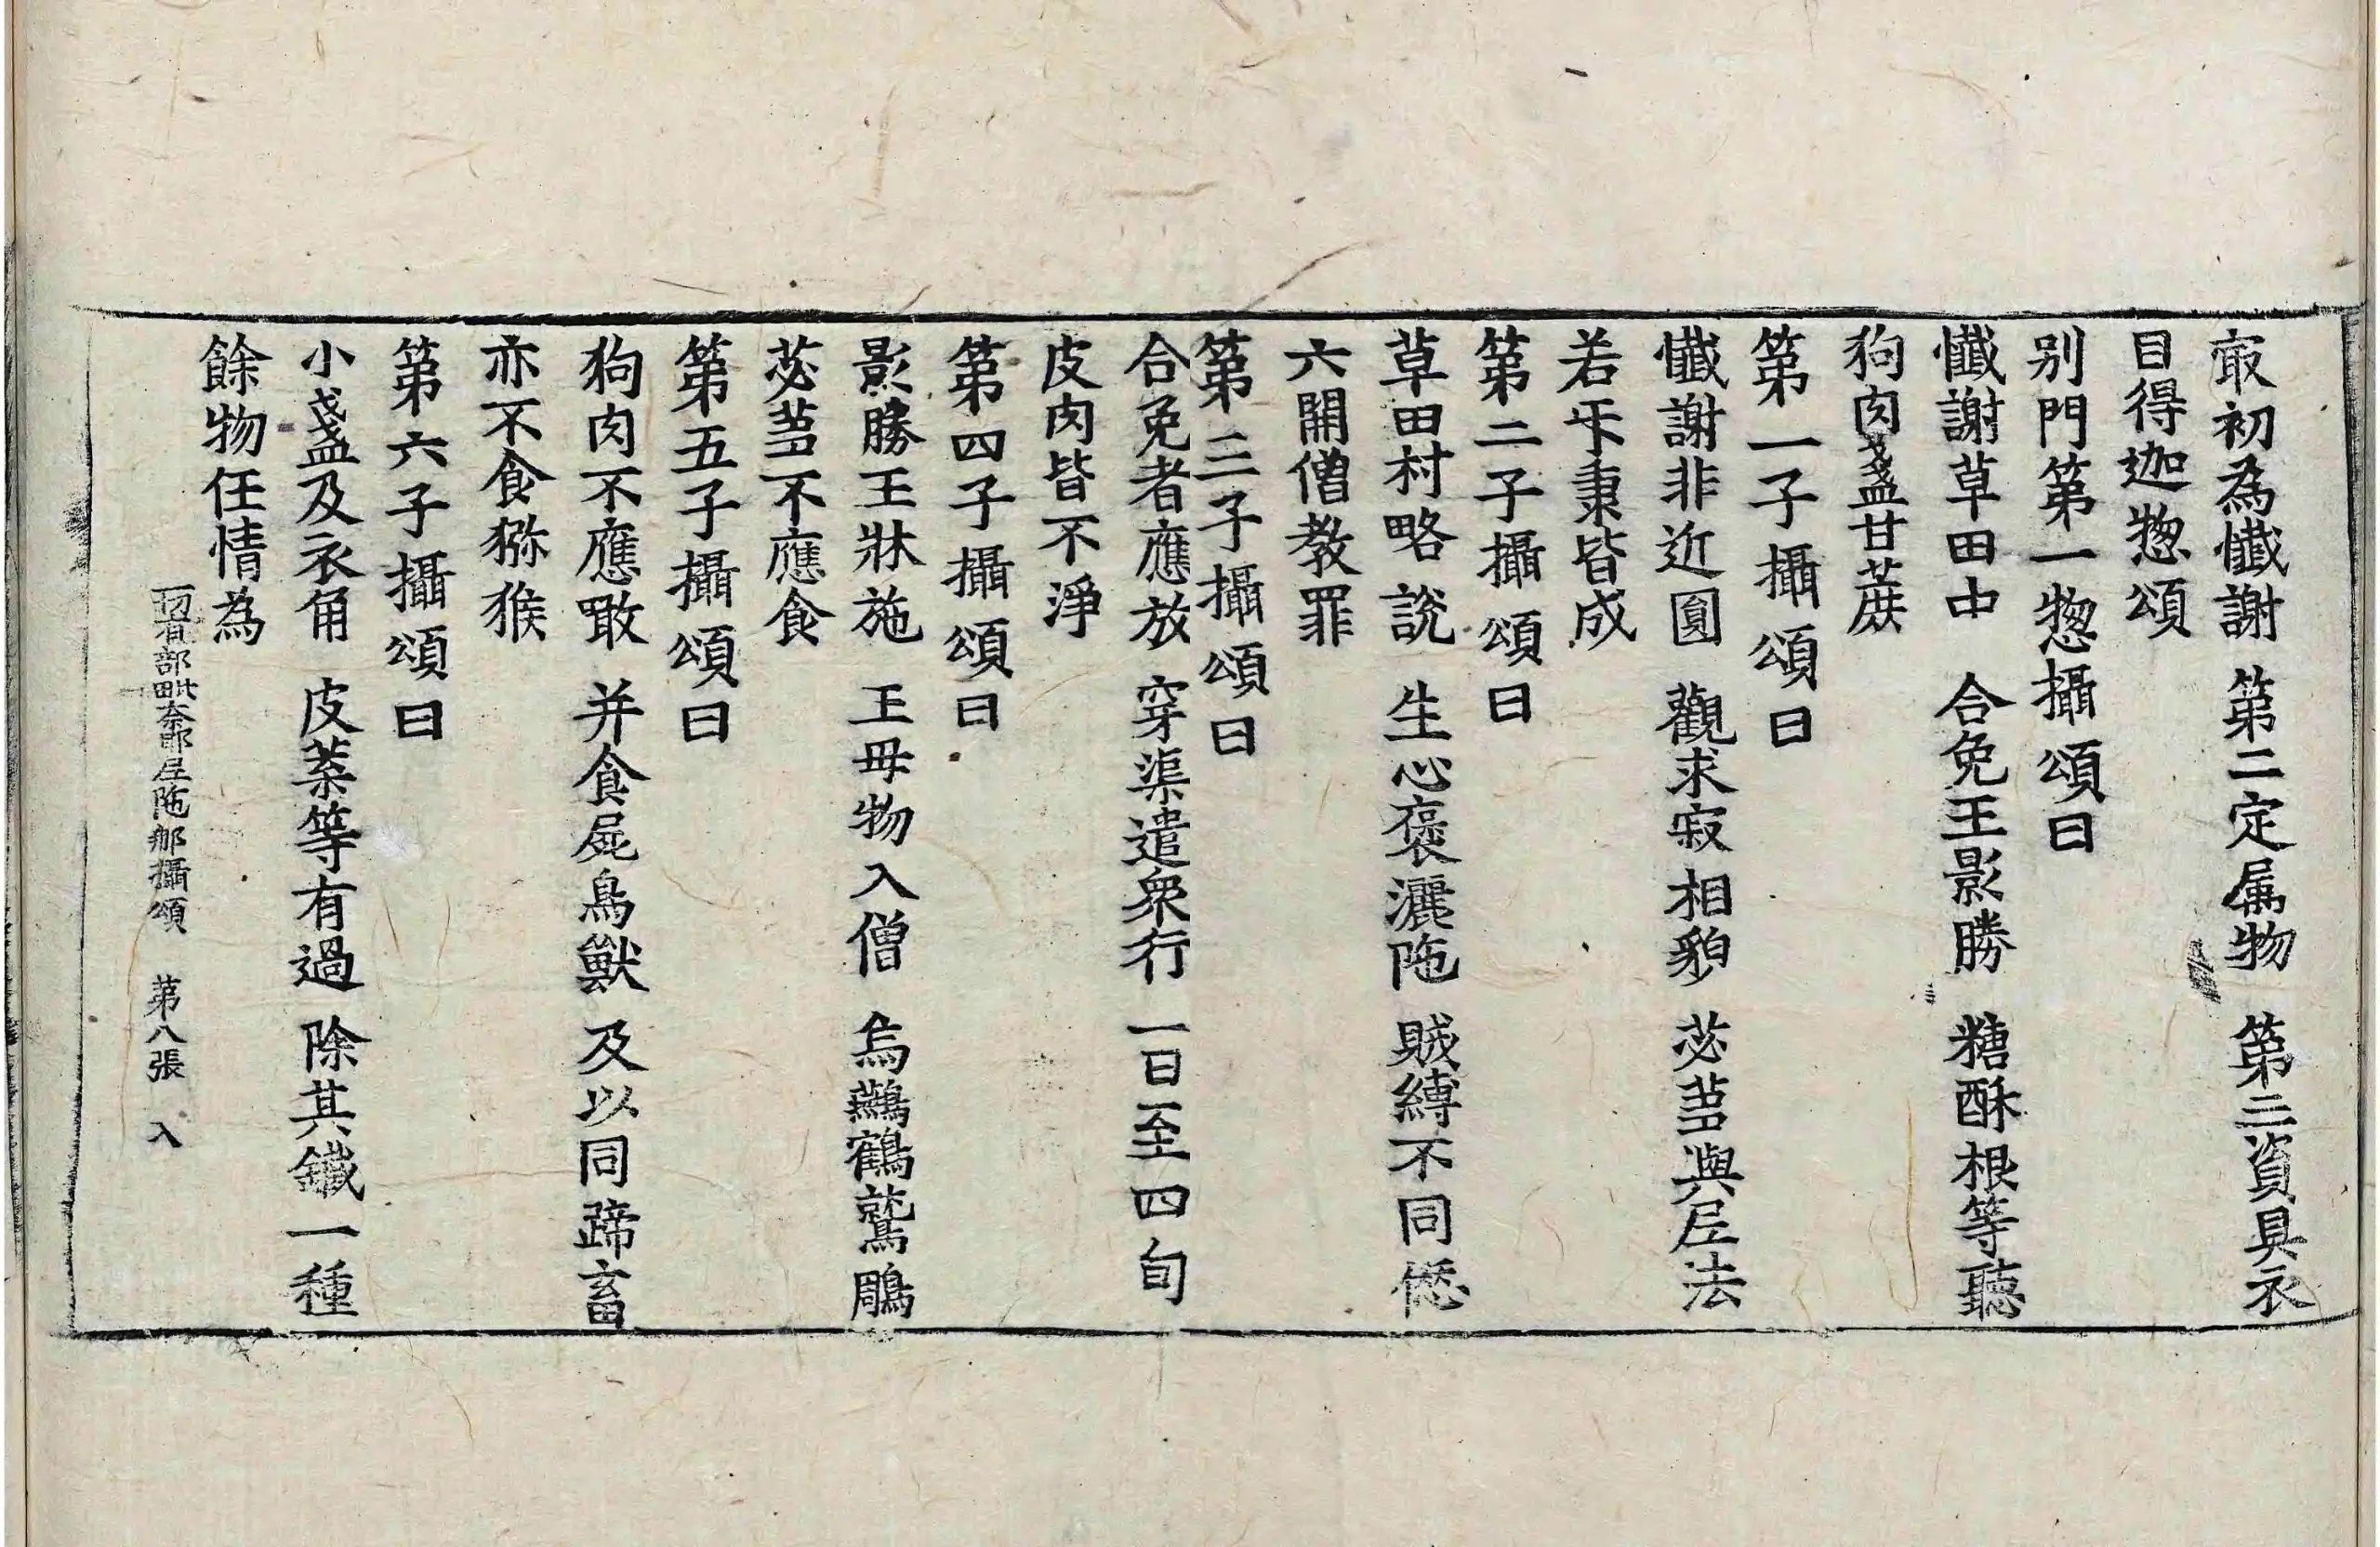 㝡初為懺謝 第二定属物 第三資具衣
目得迦惣頌
别門第一惣攝頌曰
懺謝草田中 合免王影勝 糖酥根等聽
狗肉盞甘蔗
第一子攝頌曰
懺謝非近圓 觀求寂相貌 苾蒭與尼法
若乖秉皆成
第二子攝頌曰
草田村略説 生心褒灑陁 賊縛不同愆
六開僧教罪
第三子攝頌曰
合免者應放 穿渠遣衆行 一日至四旬
皮肉皆不淨
第四子攝頌曰
影勝王牀施 王母物入僧 烏鷀鶴鷲鵰
苾蒭不應食
第五子攝頌曰
狗肉不應噉 并食屍鳥獸 及以同蹄畜
亦不食獼猴
第六子攝頌曰
小盞及衣角 皮葉等有過 除其鐵一種
餘物任情為
部毗奈耶尼陁那攝頌 第八張 入